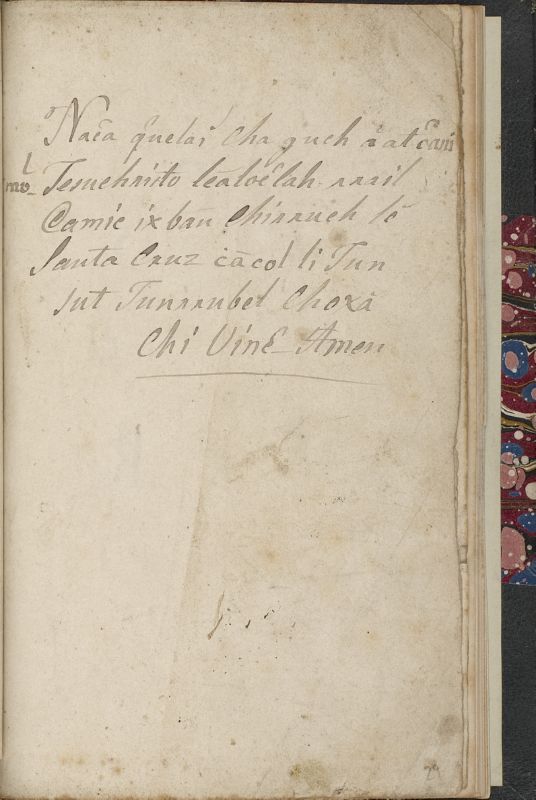 Naca quelai cha guch aatcani
mo_ Jesuchristo lealoclah rrail
Camic ixban Chirruch le
Santa Cruz cacol li Jun
sut Junrrubel Choxa
Chi Vine_ Amen
29